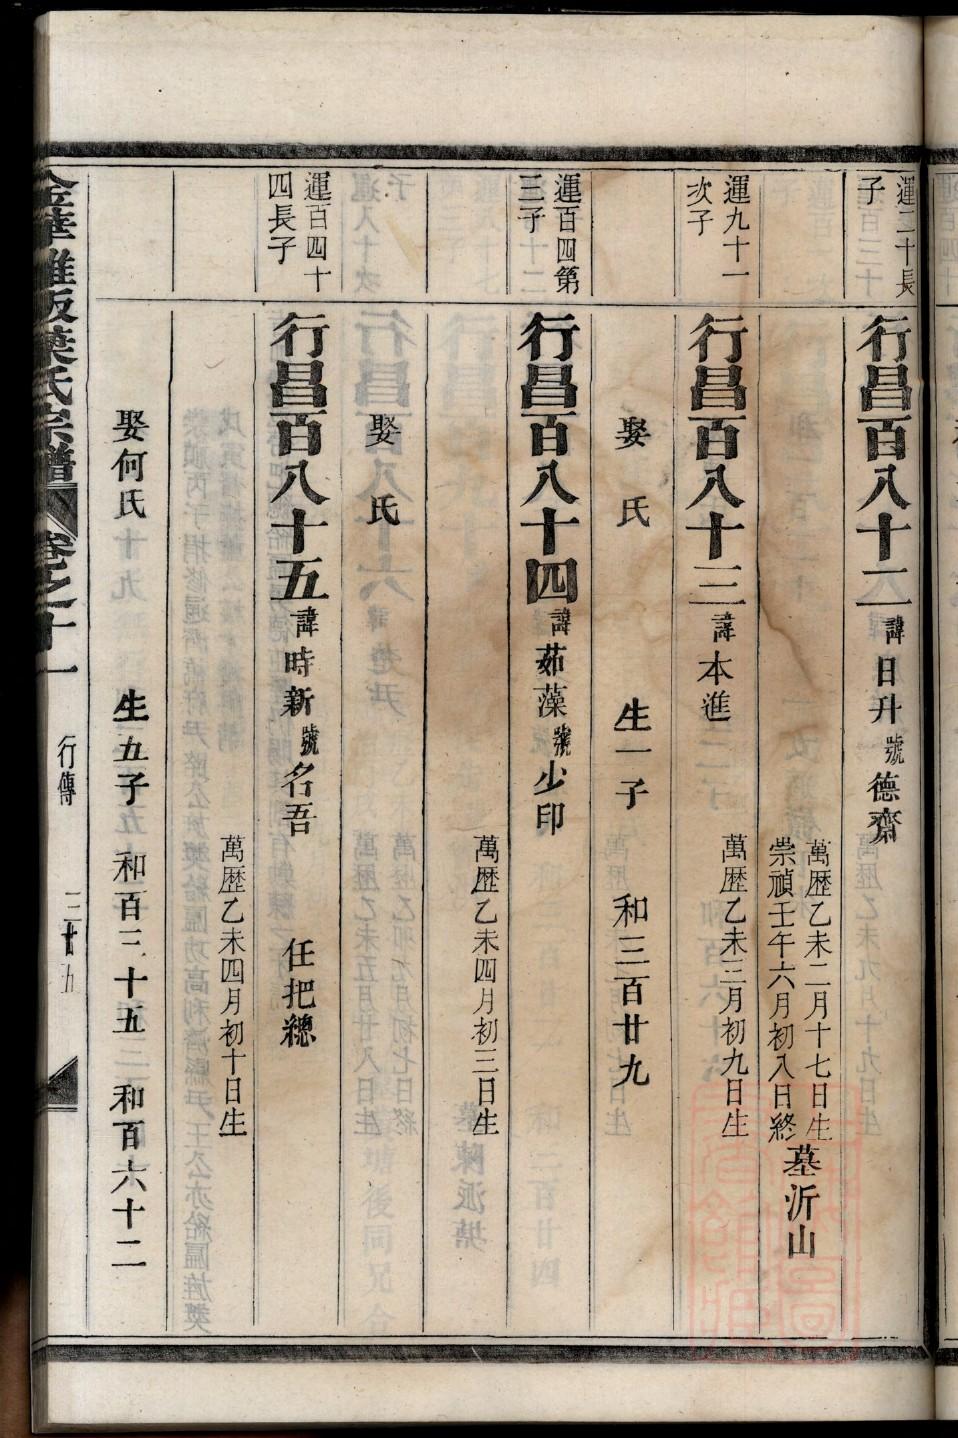 運二十長子
行昌百八十二 諱日升 號德齋
萬歷乙未二月十七日生
崇禎壬午六月初八日終
墓沂山
運九十一次子
行昌百八十三 諱本進
萬歷乙未三月初九日生
娶 氏 生一子 和三百廿九
運百四第三子
行昌百八十四 諱茹藻 號少印
萬歷乙未四月初三日生
娶 氏
運百四十四長子
行昌百八十五 諱時新 號名吾 任把總
萬歷乙未四月初十日生
娶何氏 生五子 和百三十五 和百六十二
葉氏宗譜 卷之十一 行傳 三十五